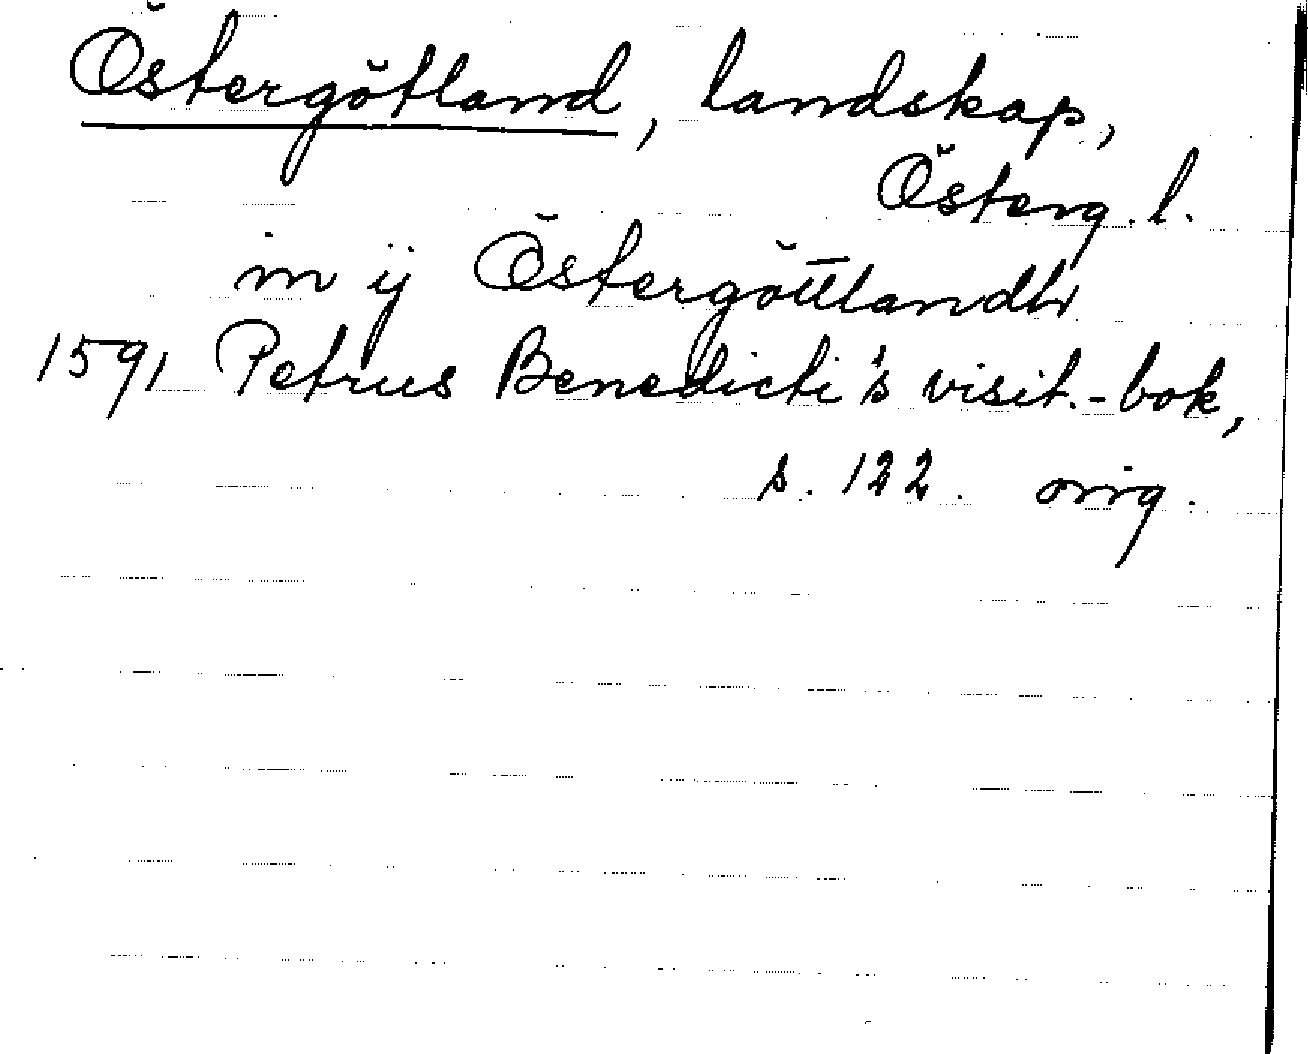 Östergötland, landskap,
Österg. l.
in ij Östergöttlandh
1591 Petrus Benedicti's visit.-bok,
s. 122. orig.